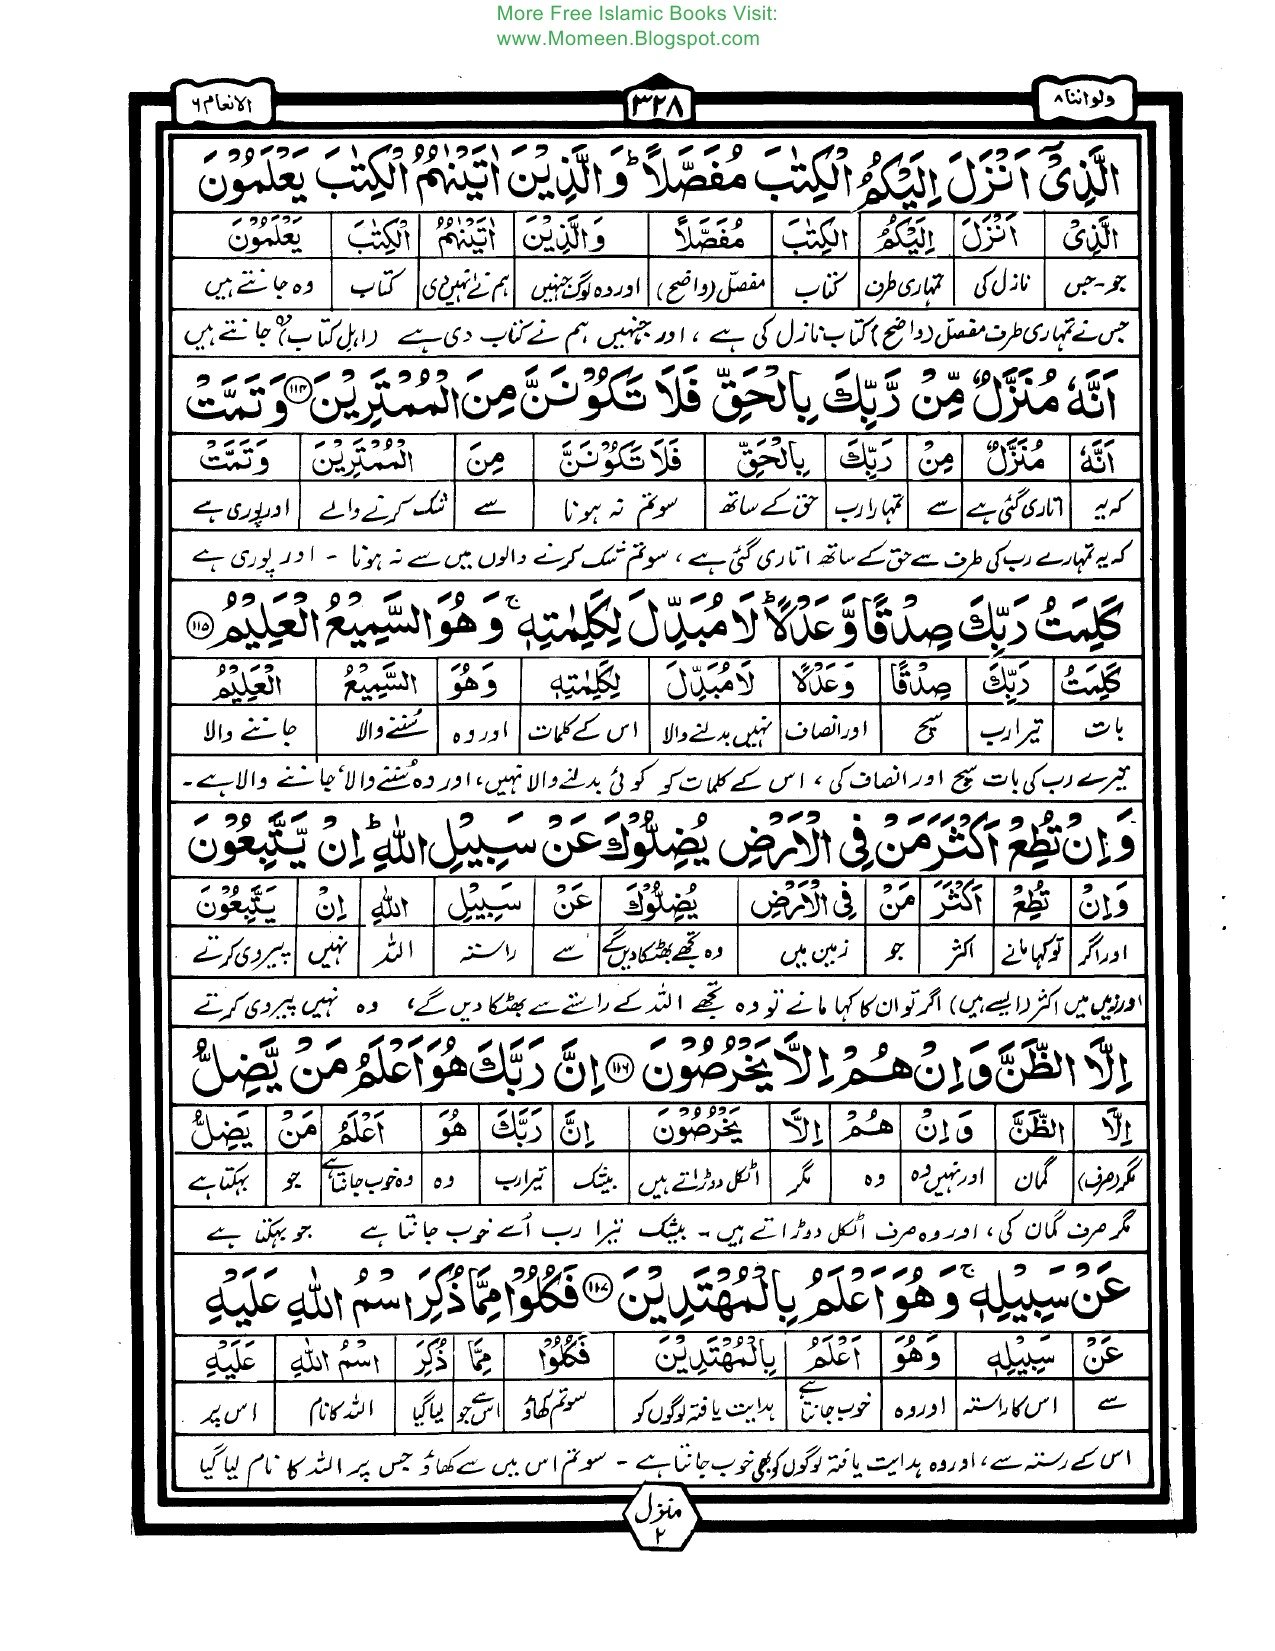 More Free Islamic Books Visit:
www.Momeen.Blogspot.com
ولواننا ۸
۳۲۸
الانعام ۶
الَّذِیْۤ اَنْزَلَ اِلَیْكُمُ الْكِتٰبَ مُفَصَّلًاؕ وَالَّذِیْنَ اٰتَیْنٰهُمُ الْكِتٰبَ یَعْلَمُوْنَ
الَّذِیْ اَنْزَلَ اِلَیْكُمُ الْكِتٰبَ مُفَصَّلًا وَالَّذِیْنَ اٰتَیْنٰهُمُ الْكِتٰبَ یَعْلَمُوْنَ
جو-جس نازل کی تمہاری طرف کتاب مفصّل (واضح) اور وہ لوگ جنہیں ہم نے انہیں دی کتاب وہ جانتے ہیں
جس نے تمہاری طرف مفصّل (واضح) کتاب نازل کی ہے ، اور جنہیں ہم نے کتاب دی ہے (اہل کتاب) وہ جانتے ہیں
اَنَّهٗ مُنَزَّلٌ مِّنْ رَّبِّكَ بِالْحَقِّ فَلَا تَكُوْنَنَّ مِنَ الْمُمْتَرِیْنَ ۱۱۴ وَتَمَّتْ
اَنَّهٗ مُنَزَّلٌ مِنْ رَبِّكَ بِالْحَقِّ فَلَا تَكُوْنَنَّ مِنَ الْمُمْتَرِیْنَ وَتَمَّتْ
کہ یہ اتاری گئی ہے سے تمہارا رب حق کے ساتھ سو تم نہ ہونا سے شک کرنے والے اور پوری ہے
کہ یہ تمہارے رب کی طرف سے حق کے ساتھ اتاری گئی ہے ، سو تم شک کرنے والوں میں سے نہ ہونا - اور پوری ہے
كَلِمَتُ رَبِّكَ صِدْقًا وَّعَدْلًاؕ لَا مُبَدِّلَ لِكَلِمٰتِهٖۚ وَهُوَ السَّمِیْعُ الْعَلِیْمُ ۱۱۵
كَلِمَتُ رَبِّكَ صِدْقًا وَعَدْلًا لَا مُبَدِّلَ لِكَلِمٰتِهٖ وَهُوَ السَّمِیْعُ الْعَلِیْمُ
بات تیرا رب سچ اور انصاف نہیں بدلنے والا اس کے کلمات اور وہ سُننے والا جاننے والا
تیرے رب کی بات سچ اور انصاف کی ، اس کے کلمات کو کوئی بدلنے والا نہیں، اور وہ سُننے والا، جاننے والا ہے۔
وَاِنْ تُطِعْ اَكْثَرَ مَنْ فِی الْاَرْضِ یُضِلُّوْكَ عَنْ سَبِیْلِ اللّٰهِؕ اِنْ یَّتَّبِعُوْنَ
وَاِنْ تُطِعْ اَكْثَرَ مَنْ فِی الْاَرْضِ یُضِلُّوْكَ عَنْ سَبِیْلِ اللّٰهِ اِنْ یَتَّبِعُوْنَ
اور اگر تو کہا مانے اکثر جو زمین میں وہ تجھے بھٹکا دیں گے سے راستہ اللہ نہیں پیروی کرتے
اور زمین میں اکثر (ایسے ہیں) اگر تو ان کا کہا مانے تو وہ تجھے اللہ کے راستے سے بھٹکا دیں گے، وہ نہیں پیروی کرتے
اِلَّا الظَّنَّ وَاِنْ هُمْ اِلَّا یَخْرُصُوْنَ ۱۱۶ اِنَّ رَبَّكَ هُوَ اَعْلَمُ مَنْ یَّضِلُّ
اِلَّا الظَّنَّ وَاِنْ هُمْ اِلَّا یَخْرُصُوْنَ اِنَّ رَبَّكَ هُوَ اَعْلَمُ مَنْ یَضِلُّ
مگر (صرف) گمان اور نہیں وہ وہ مگر اٹکل دوڑاتے ہیں بیشک تیرا رب وہ وہ خوب جانتا ہے جو بہکتا ہے
مگر صرف گمان کی ، اور وہ صرف اٹکل دوڑاتے ہیں - بیشک تیرا رب اُسے خوب جانتا ہے جو بہکتا ہے
عَنْ سَبِیْلِهٖۚ وَهُوَ اَعْلَمُ بِالْمُهْتَدِیْنَ ۱۱۷ فَكُلُوْا مِمَّا ذُكِرَ اسْمُ اللّٰهِ عَلَیْهِ
عَنْ سَبِیْلِهٖ وَهُوَ اَعْلَمُ بِالْمُهْتَدِیْنَ فَكُلُوْا مِمَّا ذُكِرَ اسْمُ اللّٰهِ عَلَیْهِ
سے اس کا راستہ اور وہ خوب جانتا ہے ہدایت یافتہ لوگوں کو سو تم کھاؤ اس سے جو لیا گیا اللہ کا نام اس پر
اس کے رستہ سے ، اور وہ ہدایت یافتہ لوگوں کو بھی خوب جانتا ہے - سو تم اس میں سے کھاؤ جس پر اللہ کا نام لیا گیا
منزل
۲